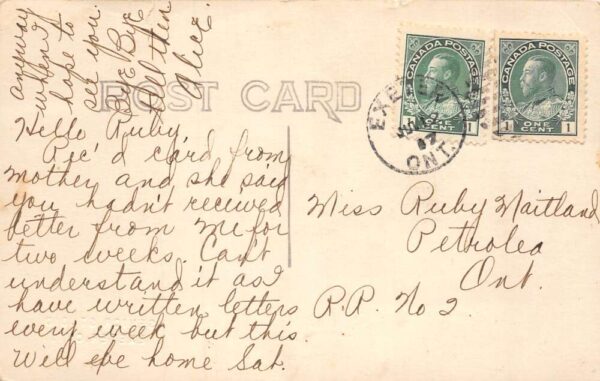 POST CARD
Hello Ruby.
Rec'd card from
Mother and she said
you hadn't received
letter from me for
two weeks. Can't
understand it as I
have written letters
every week but this.
Will be home Sat.
anyway
when I
hope to
see you.
Bye Bye
till then
Alice.
CANADA POSTAGE
1 CENT 1
CANADA POSTAGE
1 ONE CENT 1
EXETER
ONT.
Miss Ruby Maitland
Petrolea
Ont.
R.R. No 2.